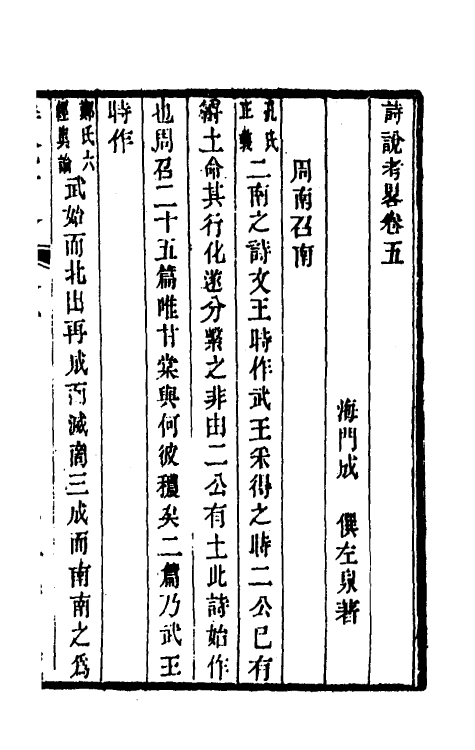 詩說考畧卷五
海門成　僎左泉著
周南召南
孔氏正義二南之詩文王時作武王采得之時二公已有
爵土命其行化遂分繫之非由二公有土此詩始作
也周召二十五篇唯甘棠與何彼穠矣二篇乃武王
時作
鄭氏六經奧論武始而北出再成而滅商三成而南南之爲